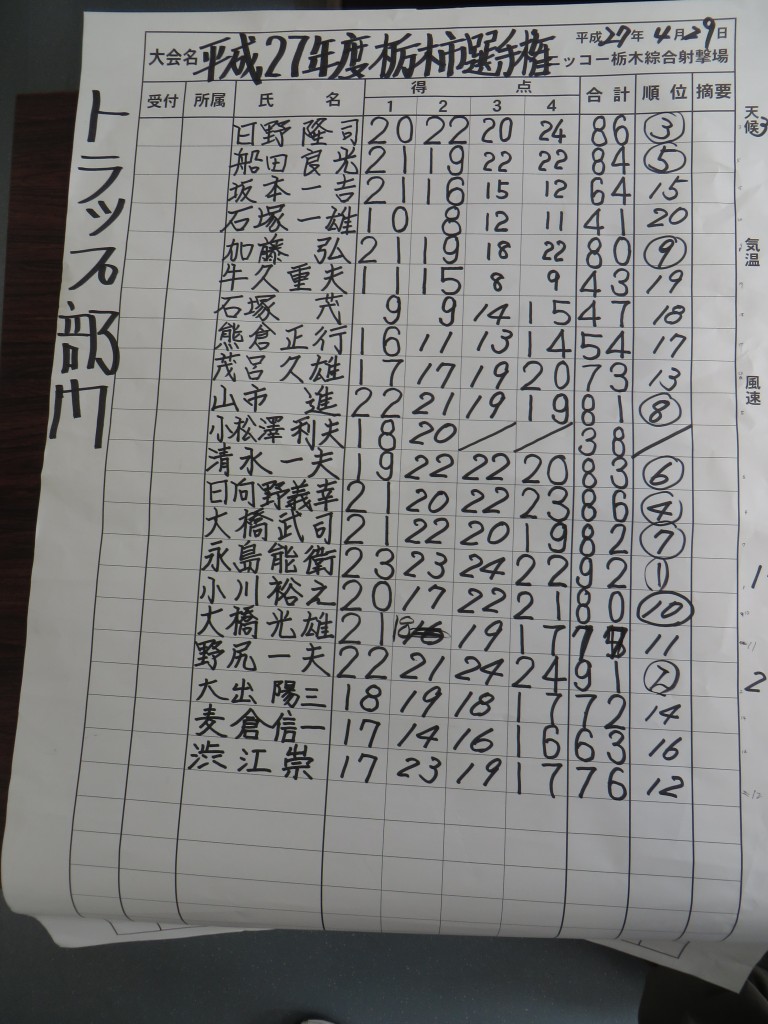 大会名 平成27年度栃木市選手権 平成27年4月29日
ニッコー栃木綜合射撃場
トラップ部門
受付 所属 氏名 得点 合計 順位 摘要
1 2 3 4
日野隆司 20 22 20 24 86 ③
船田良光 21 19 22 22 84 ⑤
坂本一吉 21 16 15 12 64 15
石塚一雄 10 8 12 11 41 20
加藤弘 21 19 18 22 80 ⑨
牛久重夫 11 15 8 9 43 19
石塚茂 9 9 14 15 47 18
熊倉正行 16 11 13 14 54 17
茂呂久雄 17 17 19 20 73 13
山市進 22 21 19 19 81 ⑧
小松澤利夫 18 20 / / 38 /
清水一夫 19 22 22 20 83 ⑥
日向野義幸 21 20 22 23 86 ④
大橋武司 21 22 20 19 82 ⑦
永島能衛 23 23 24 22 92 ①
小川裕之 20 17 22 21 80 ⑩
大橋光雄 21 19 17 11
野尻一夫 22 21 24 24 91 ②
大出陽三 18 19 18 17 72 14
麦倉信一 17 14 16 16 63 16
渋江崇 17 23 19 17 76 12
天候
気温
風速
1
2